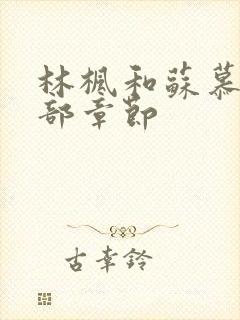 林楓和蘇慕
部章節
古幸鈴